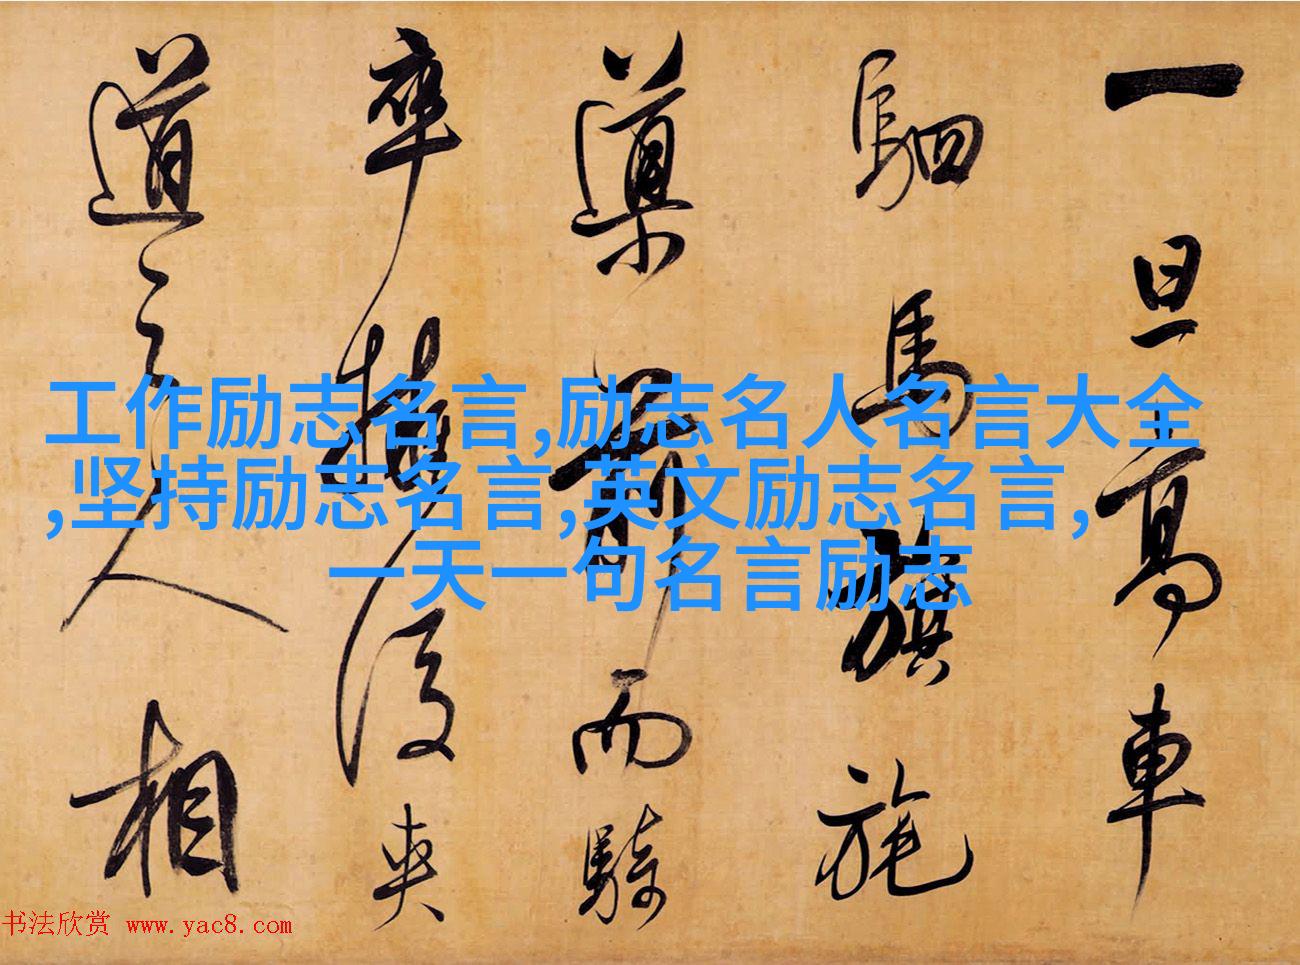 一旦高車
駟馬旗旄
導前而騎
卒擁後夾
道之人相
工作励志名言,励志名人名言大全
,坚持励志名言,英文励志名言,
一天一句名言励志
书法欣赏 www.yac8.com